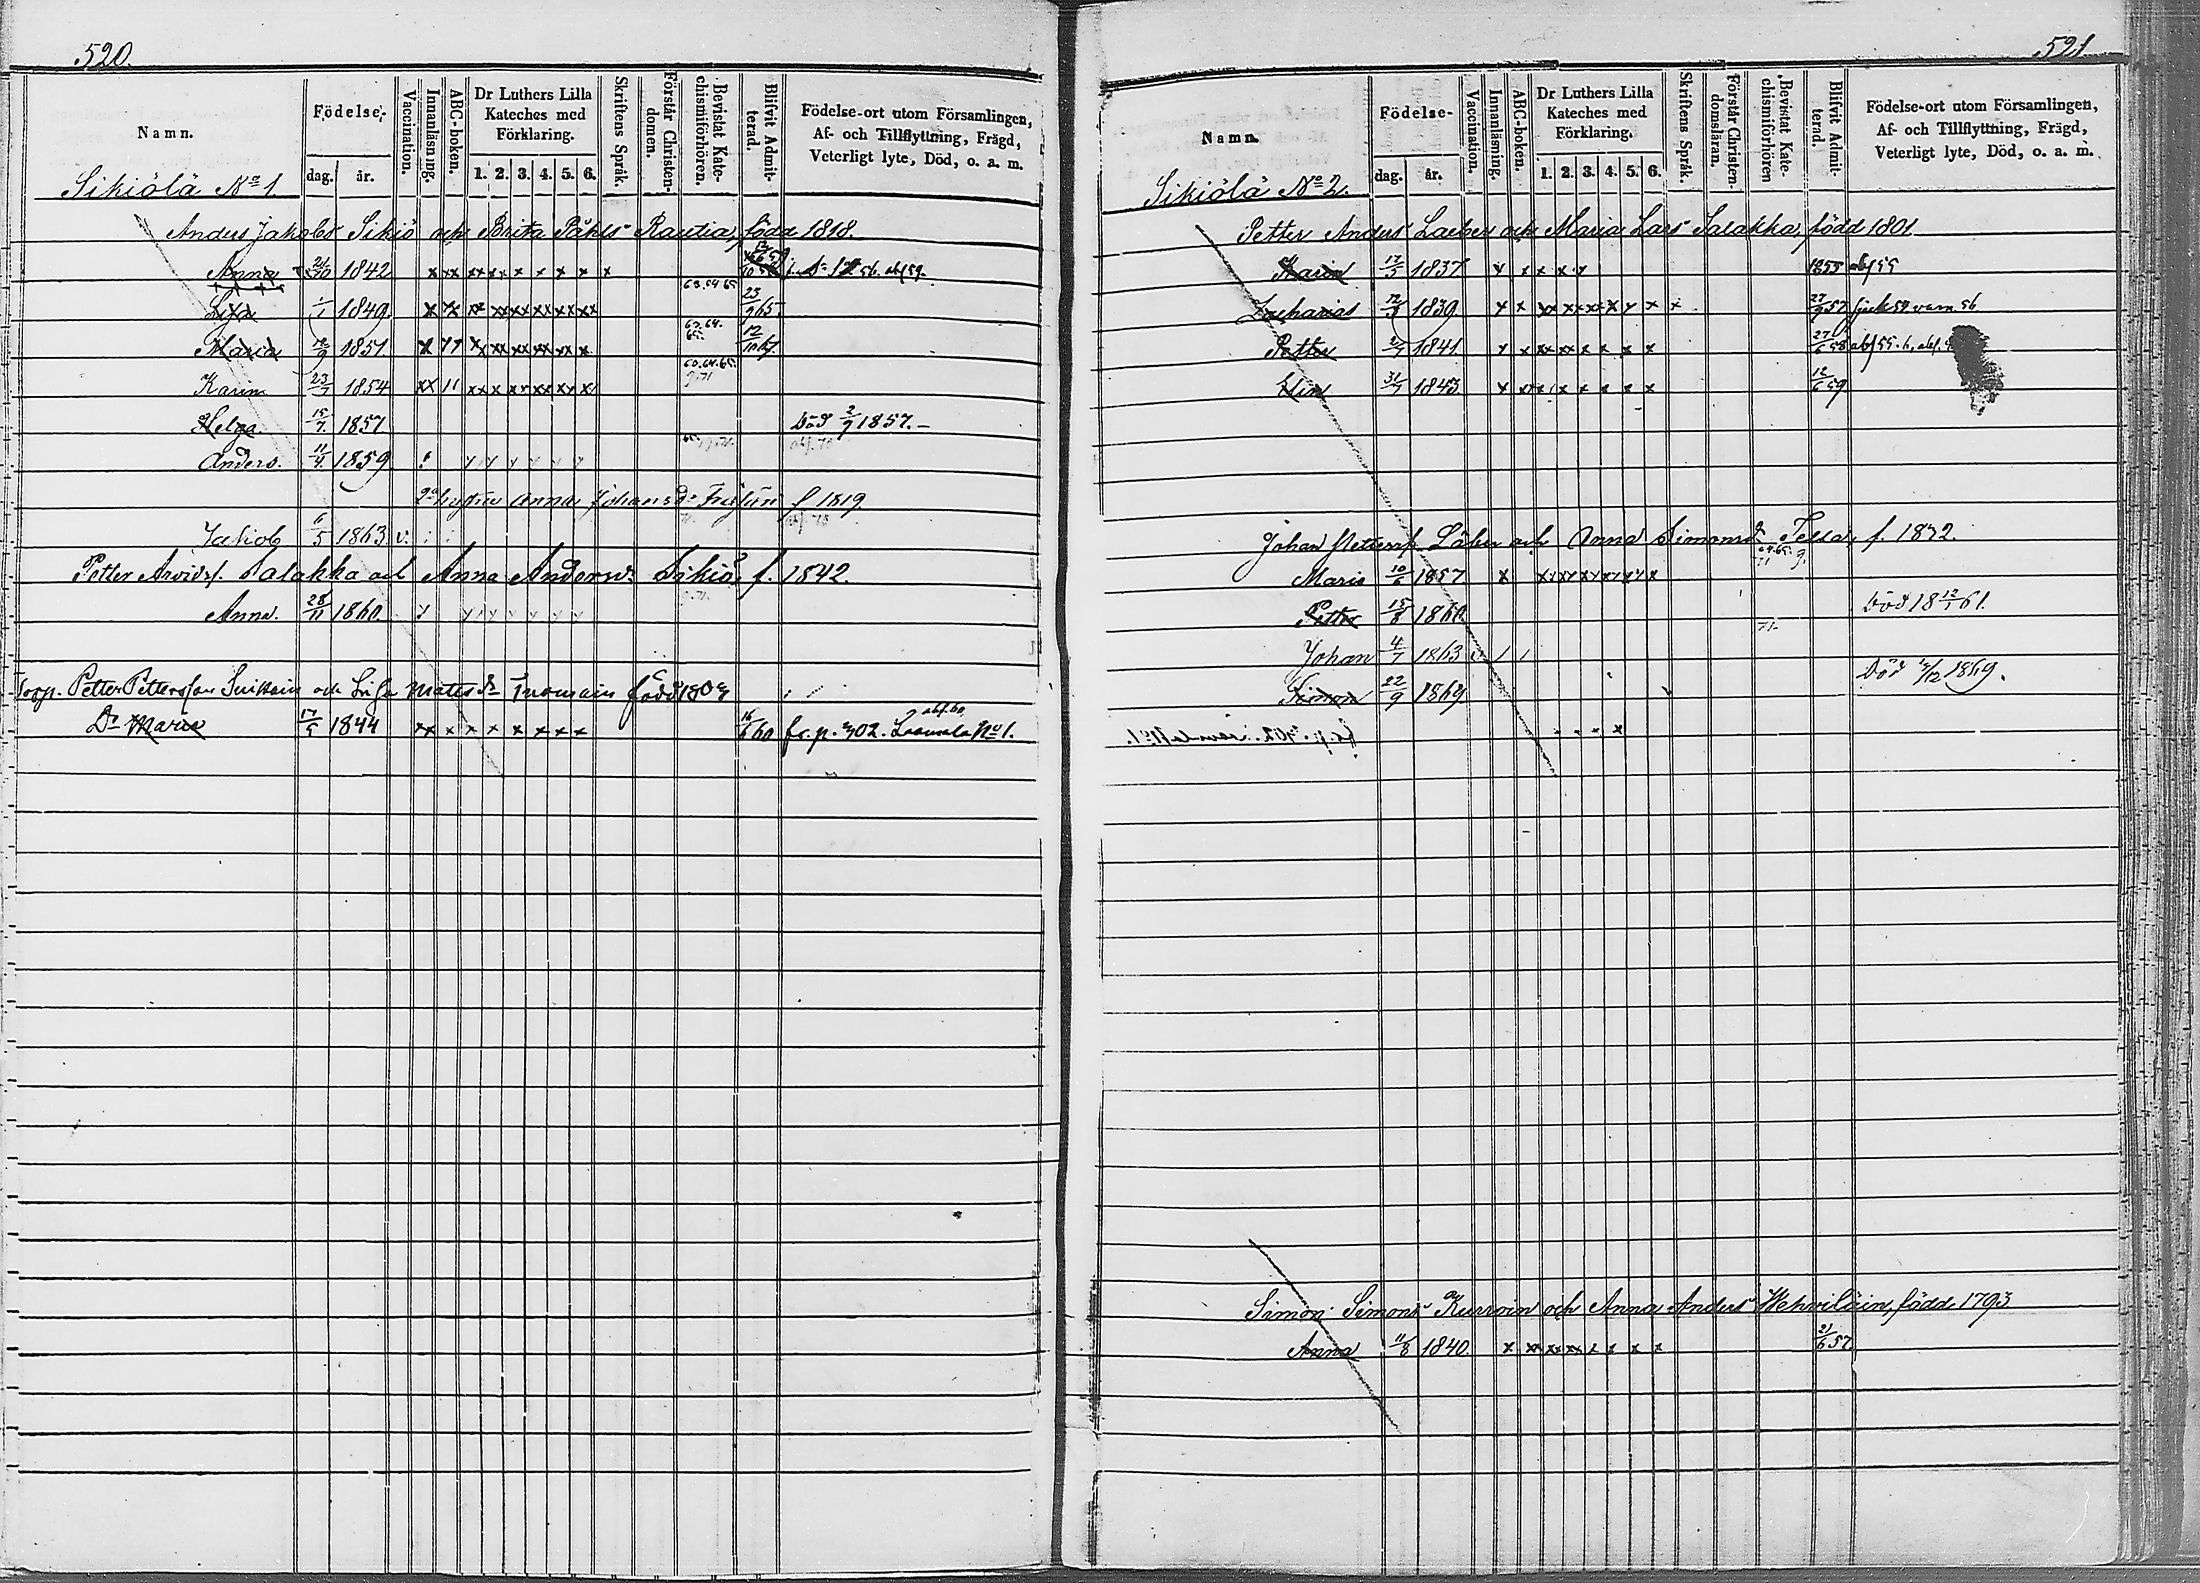 520.
Namn.
Födelse-
dag. år.
Vaccination.
Innanläsning.
ABC-boken.
Dr Luthers Lilla
Kateches med
Förklaring.
1. 2. 3. 4. 5. 6.
Skriftens Språk.
Förstår Christen-
domen.
Bevistat Kate-
chismiförhören.
Blifvit Admit-
terad.
Födelse-ort utom Församlingen,
Af- och Tillflyttning, Frägd,
Veterligt lyte, Död, o. a. m.
Sikiölä No 1
Anders Jakobs Sikiö och Brita Påhls Rautia, född 1818.
Anna 1842
Lisa 1/1 1849 63.64.65 23/9 65
Maria 1851 63.64.65. 12/10 67.
Karin 23/7 1854 63.64.65.
Helga 15/7. 1857 Död 2/9 1857.
Anders. 11/4. 1859
2a hustru Anna Johansdr f 1819.
Jakob 6/5 1863 v.
Petter Arvidsf. Salakka och Anna Andersdr Sikiö, f. 1842.
Anna. 28/11 1860.
Petter Pettersson och Lisa Matsdr född
Dr Maria 17/5 1844 16/6 60 fr. p. 302. No 1.
521
Namn.
Födelse-
dag. år.
Vaccination.
Innanläsning.
ABC-boken.
Dr Luthers Lilla
Kateches med
Förklaring.
1. 2. 3. 4. 5. 6.
Skriftens Språk.
Förstår Christen-
domsläran.
Bevistat Kate-
chismiförhören
Blifvit Admit-
terad.
Födelse-ort utom Församlingen,
Af- och Tillflyttning, Frägd,
Veterligt lyte, Död, o. a. m.
Sikiölä No 2.
Petter Anders Laeber och Maria Lars Salakka, född 1801
Karin 17/5 1837 1855 abf 55
Zacharias 12/3 1839 27/9 57
Petter 2/7 1841 27/6 58
31/7 1843. 12/6 59
Johan Pettersf. Läber och Anna Simonsdr f. 1832.
Maria 10/6 1857 64.65. 71
Petter 15/8 1860. Död 18 12/1 61.
Johan 4/7 1863 71.
Simon 22/9 1869. Död /12 1869.
Simon Simons Kurroin och Anna Anders Wehviläin, född 1793
Anna 11/8 1840. 21/6 57